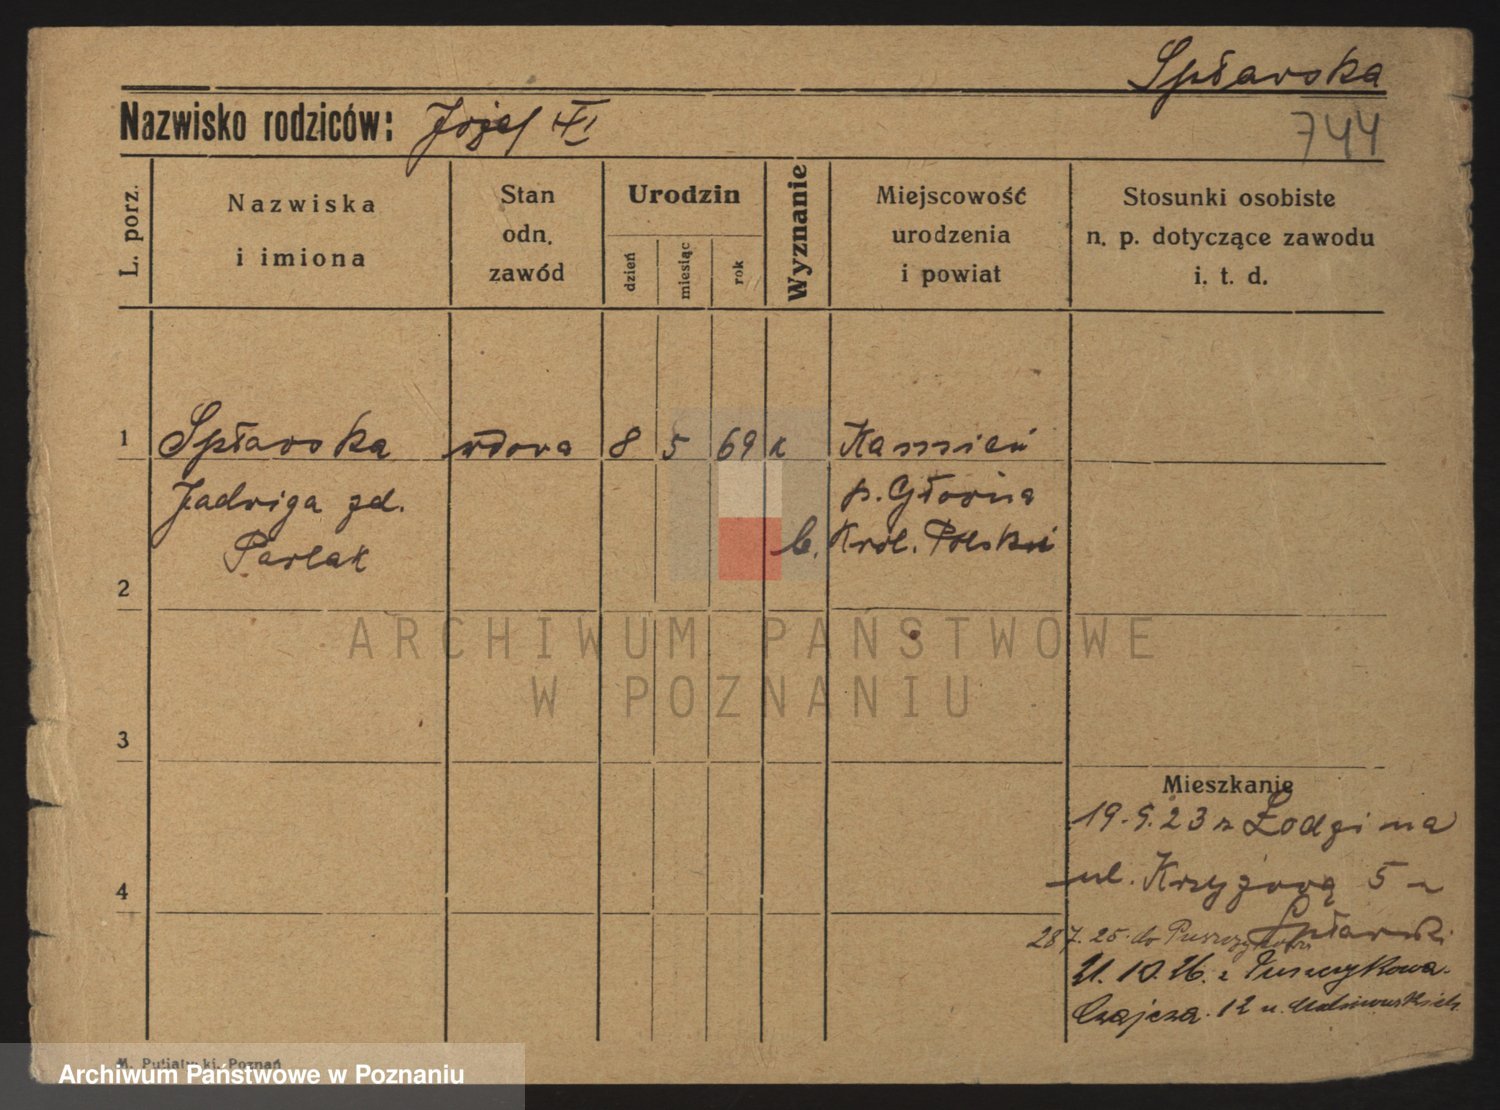 Spławska
Nazwisko rodziców: Józef
744
L. porz.
Nazwiska
i imiona
Stan
odn.
zawód
Urodzin
dzień
miesiąc
rok
Wyznanie
Miejscowość
urodzenia
i powiat
Stosunki osobiste
n. p. dotyczące zawodu
i. t. d.
1 Spławska wdowa 8 5 69 k Kamień
Jadwiga zd. p. Główna
Pawlak b. Król. Polskie
2
ARCHIWUM PAŃSTWOWE
W POZNANIU
3
Mieszkanie
19.5.23 z Łodzi na
4
ul. Krzyżową 5
Spławski
28 7. 25. do Puszczykowa
21. 10. 26. z Puszczykowa
12 u.
M. Putiatycki, Poznań
Archiwum Państwowe w Poznaniu